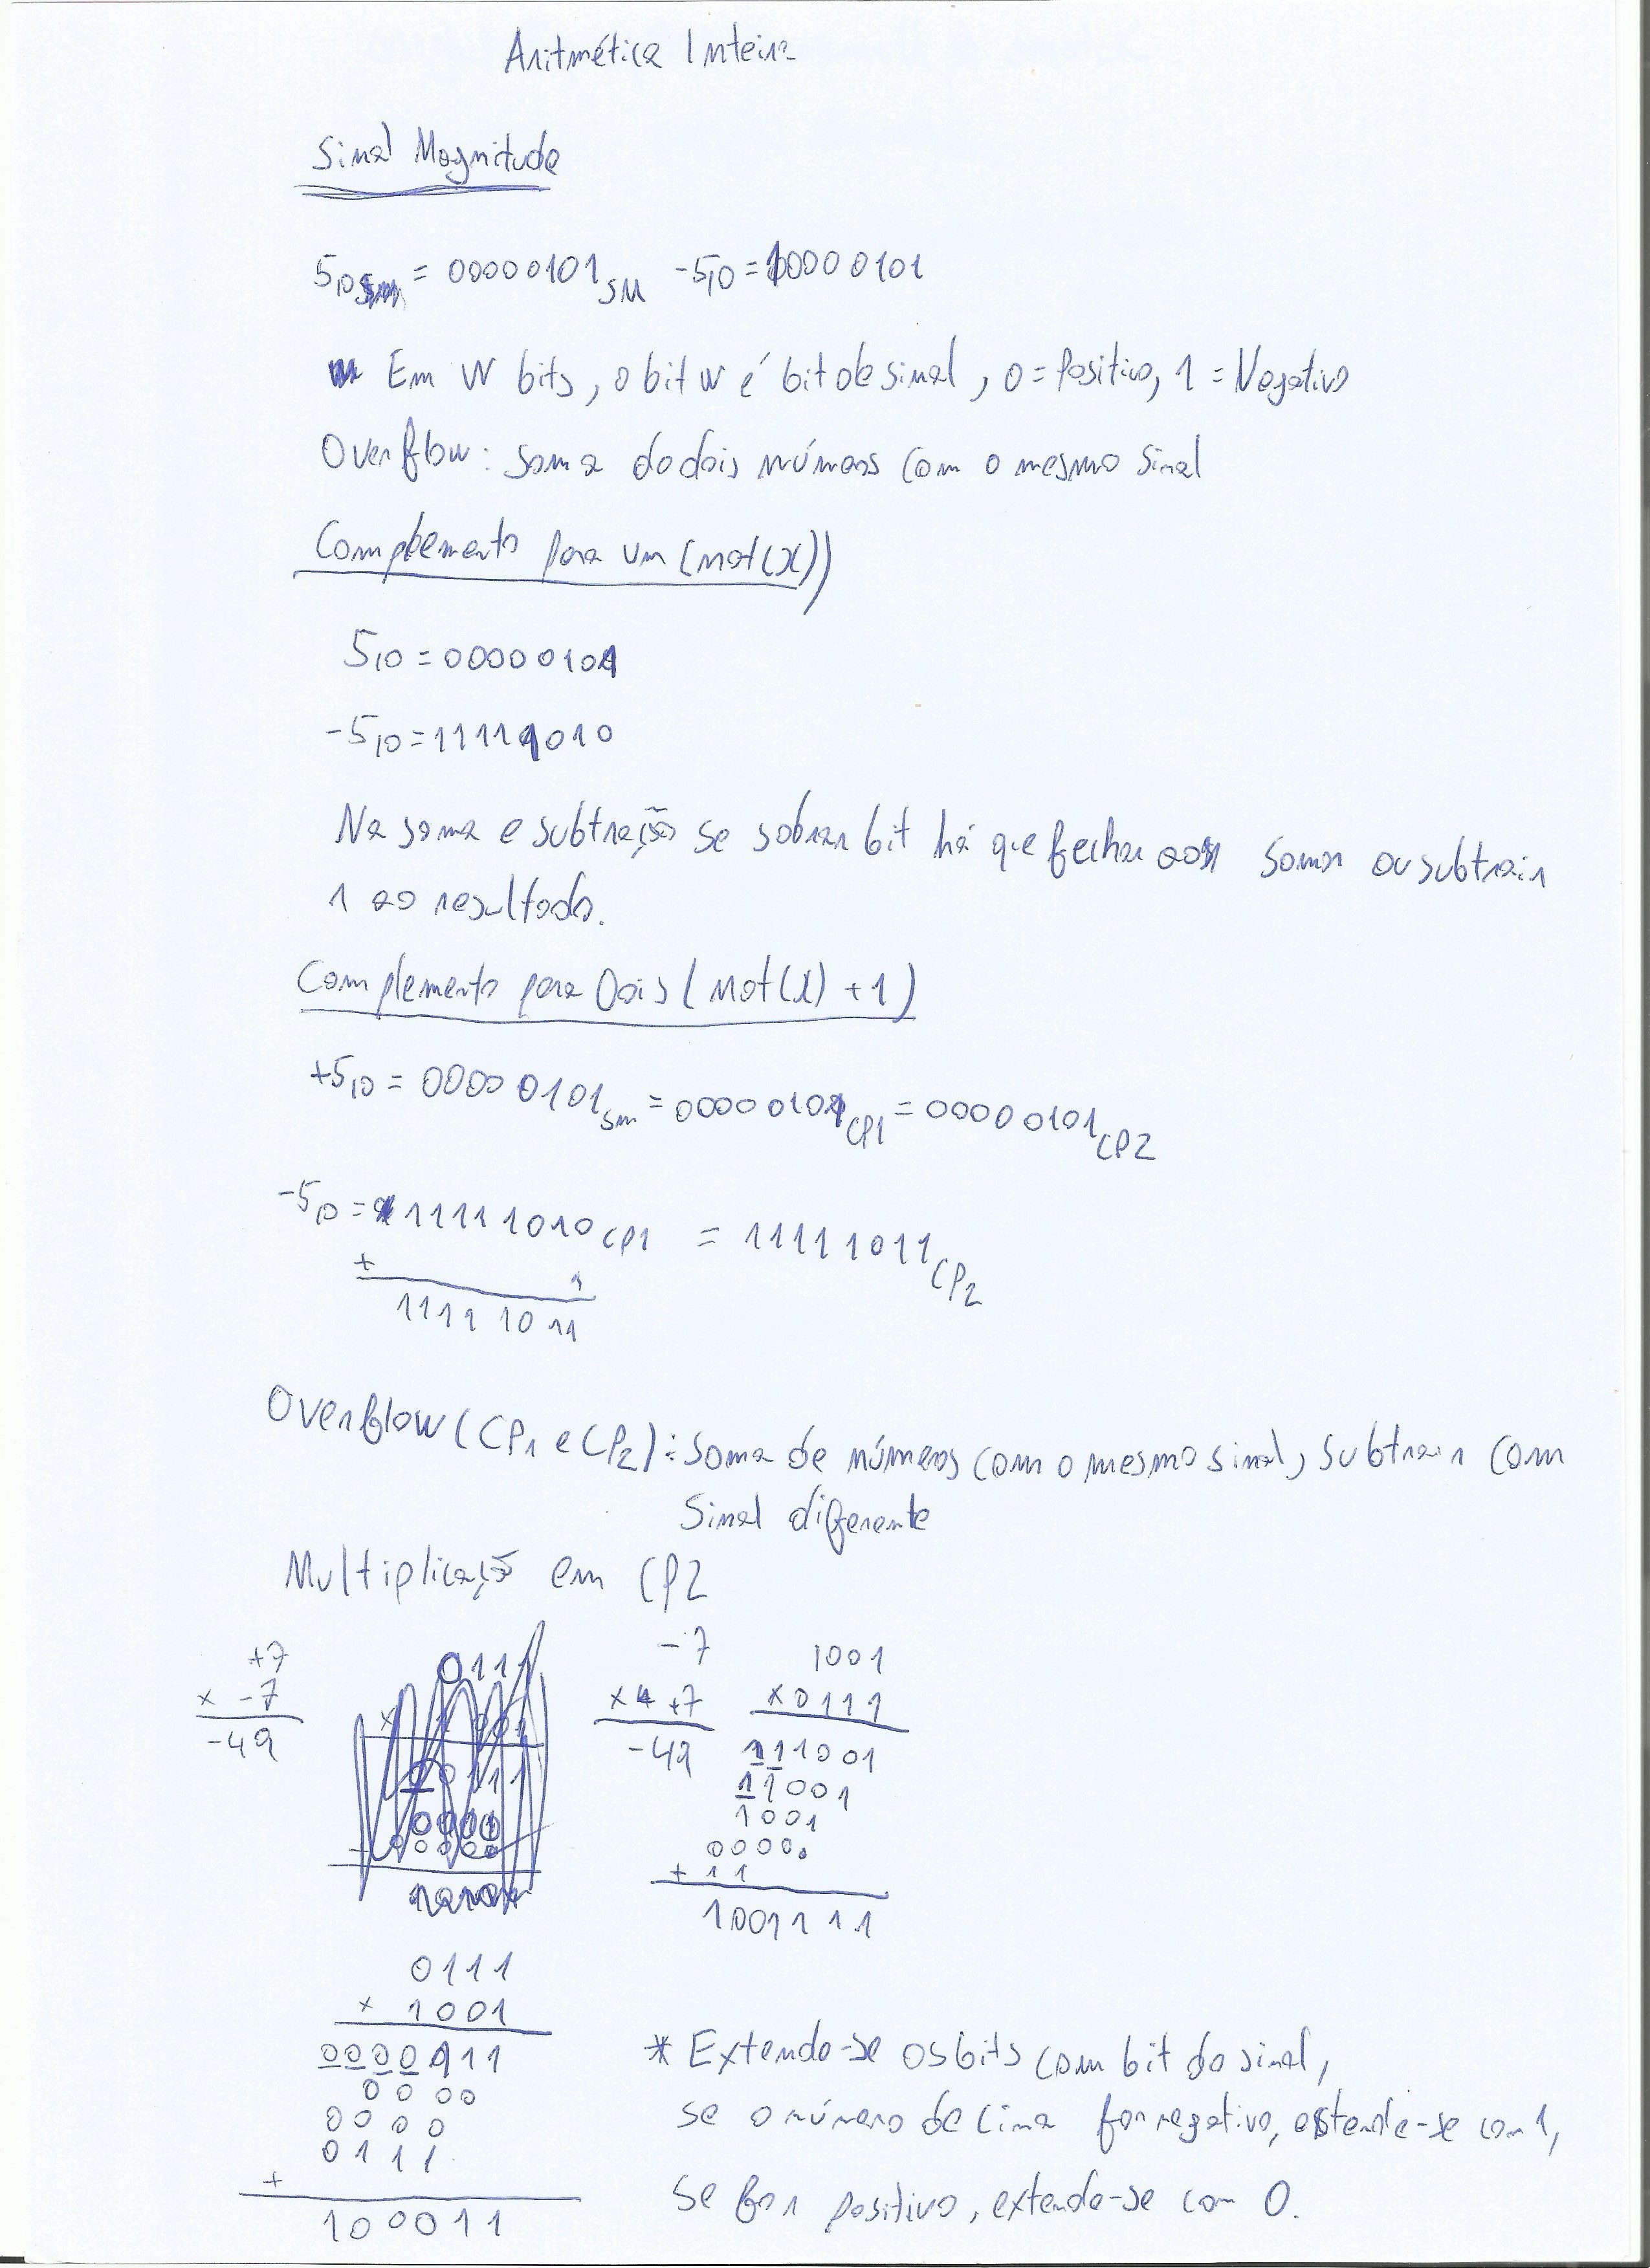 Aritmética Inteira
Sinal Magnitude
5₁₀ = 00000101 SM -5₁₀ = 10000101
Em W bits, o bit w é bit de sinal, 0 = Positivo, 1 = Negativo
Overflow: soma do dois números com o mesmo sinal
Complemento para um (not(x))
5₁₀ = 00000101
-5₁₀ = 11111010
Na soma e subtração se sobrar bit há que fechar somar ou subtrair
1 ao resultado.
Complemento para Dois (Not(x) + 1)
+5₁₀ = 00000101 sm = 00000101 CP1 = 00000101 CP2
-5₁₀ = 11111010 CP1 = 11111011 CP2
+ 1
11111011
Overflow (CP1 e CP2): soma de números com o mesmo sinal, subtrair com
Sinal diferente
Multiplicação em CP2
+7
x -7
-49
0111
-7
x +7
-49
1001
x 0111
111001
11001
1001
0000
+ 11
1001111
0111
x 1001
0000111
0000
0000
0111
+
100011
* Extende-se os bits com bit do sinal,
se o número de cima for negativo, extende-se com 1,
se for positivo, extende-se com 0.